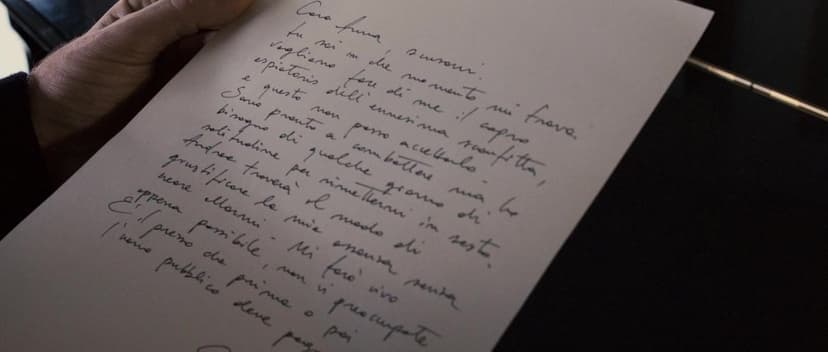 Cara Anna, scusami.
tu sai in che momento mi trovo.
vogliono fare di me il capro
espiatorio dell'ennesima sconfitta,
e questo non posso accettarlo.
Sono pronto a combattere ma ho
bisogno di qualche giorno di
solitudine per rimettermi in sesto.
Andrea troverà il modo di
giustificare la mia assenza senza
creare allarmi. Mi farò vivo
appena possibile, non vi preoccupate
È il prezzo che prima o poi
l'uomo pubblico deve pag